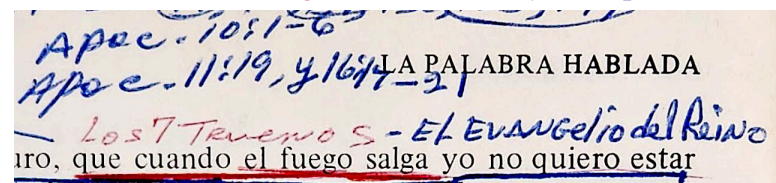 Apoc. 10:1-6
Apoc. 11:19, y 16:17-21
LA PALABRA HABLADA
Los 7 Truenos - EL EVANGelio del Reino
uro, que cuando el fuego salga yo no quiero estar